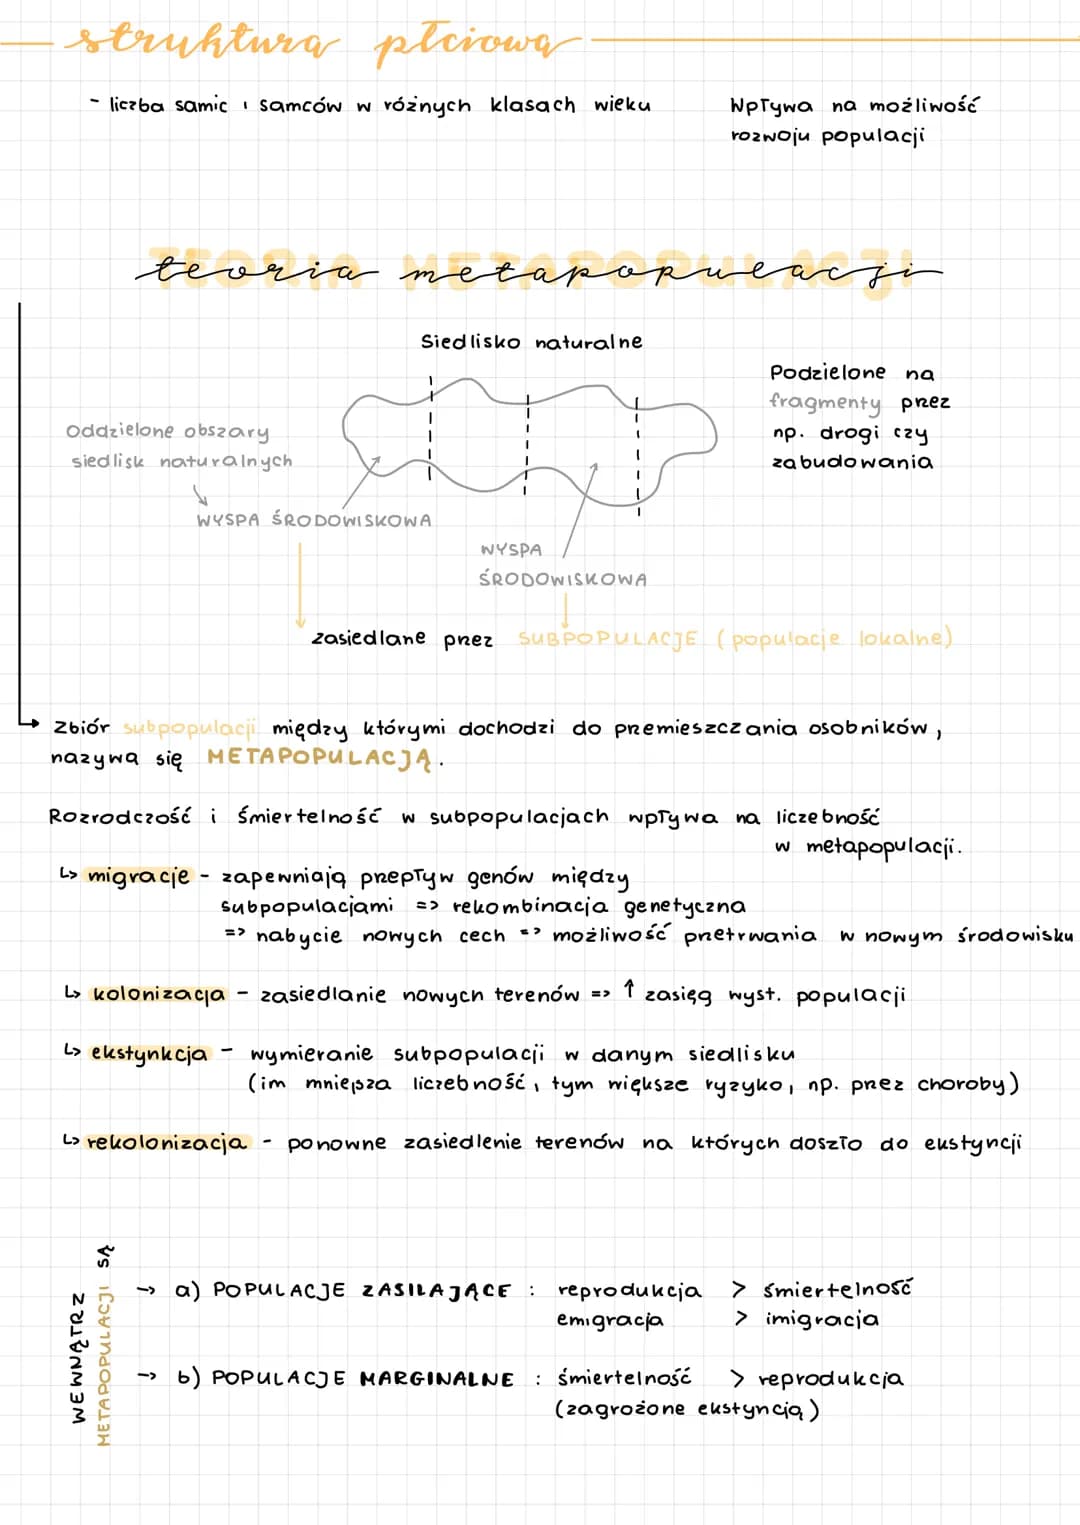 struktura płciowa
- liczba samic i samców w różnych klasach wieku
Wpływa na możliwość
rozwoju populacji
teoria metapopulacji
Siedlisko naturalne
Podzielone na
fragmenty przez
np. drogi czy
zabudowania
Oddzielone obszary
siedlisk naturalnych
WYSPA ŚRODOWISKOWA
WYSPA
ŚRODOWISKOWA
zasiedlane przez SUBPOPULACJE (populacje lokalne)
Zbiór subpopulacji między którymi dochodzi do przemieszczania osobników,
nazywa się METAPOPULACJĄ.
Rozrodczość i śmiertelność w subpopulacjach wpływa na liczebność
w metapopulacji.
↳ migracje - zapewniają przepływ genów między
subpopulacjami => rekombinacja genetyczna
=> nabycie nowych cech => możliwość przetrwania w nowym środowisku
↳ kolonizacja - zasiedlanie nowych terenów => ↑ zasięg wyst. populacji
↳ ekstynkcja - wymieranie subpopulacji w danym siedlisku
(im mniejsza liczebność, tym większe ryzyko, np. przez choroby)
↳ rekolonizacja - ponowne zasiedlenie terenów na których doszło do ekstyncji
WEWNĄTRZ
METAPOPULACJI SĄ
→ a) POPULACJE ZASILAJĄCE : reprodukcja > śmiertelność
emigracja > imigracja
→ b) POPULACJE MARGINALNE : śmiertelność > reprodukcja
(zagrożone ekstyncją)